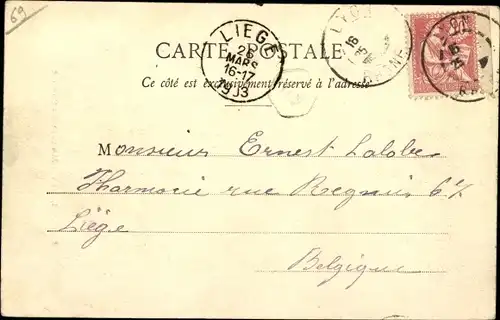 69
LIEGE
26
MARS
16-17
1903
16
RHONE
CARTE POSTALE
Ce côté est exclusivement réservé à l'adresse
Monsieur Ernest Lalobe
Pharmacie rue
Liège
Belgique